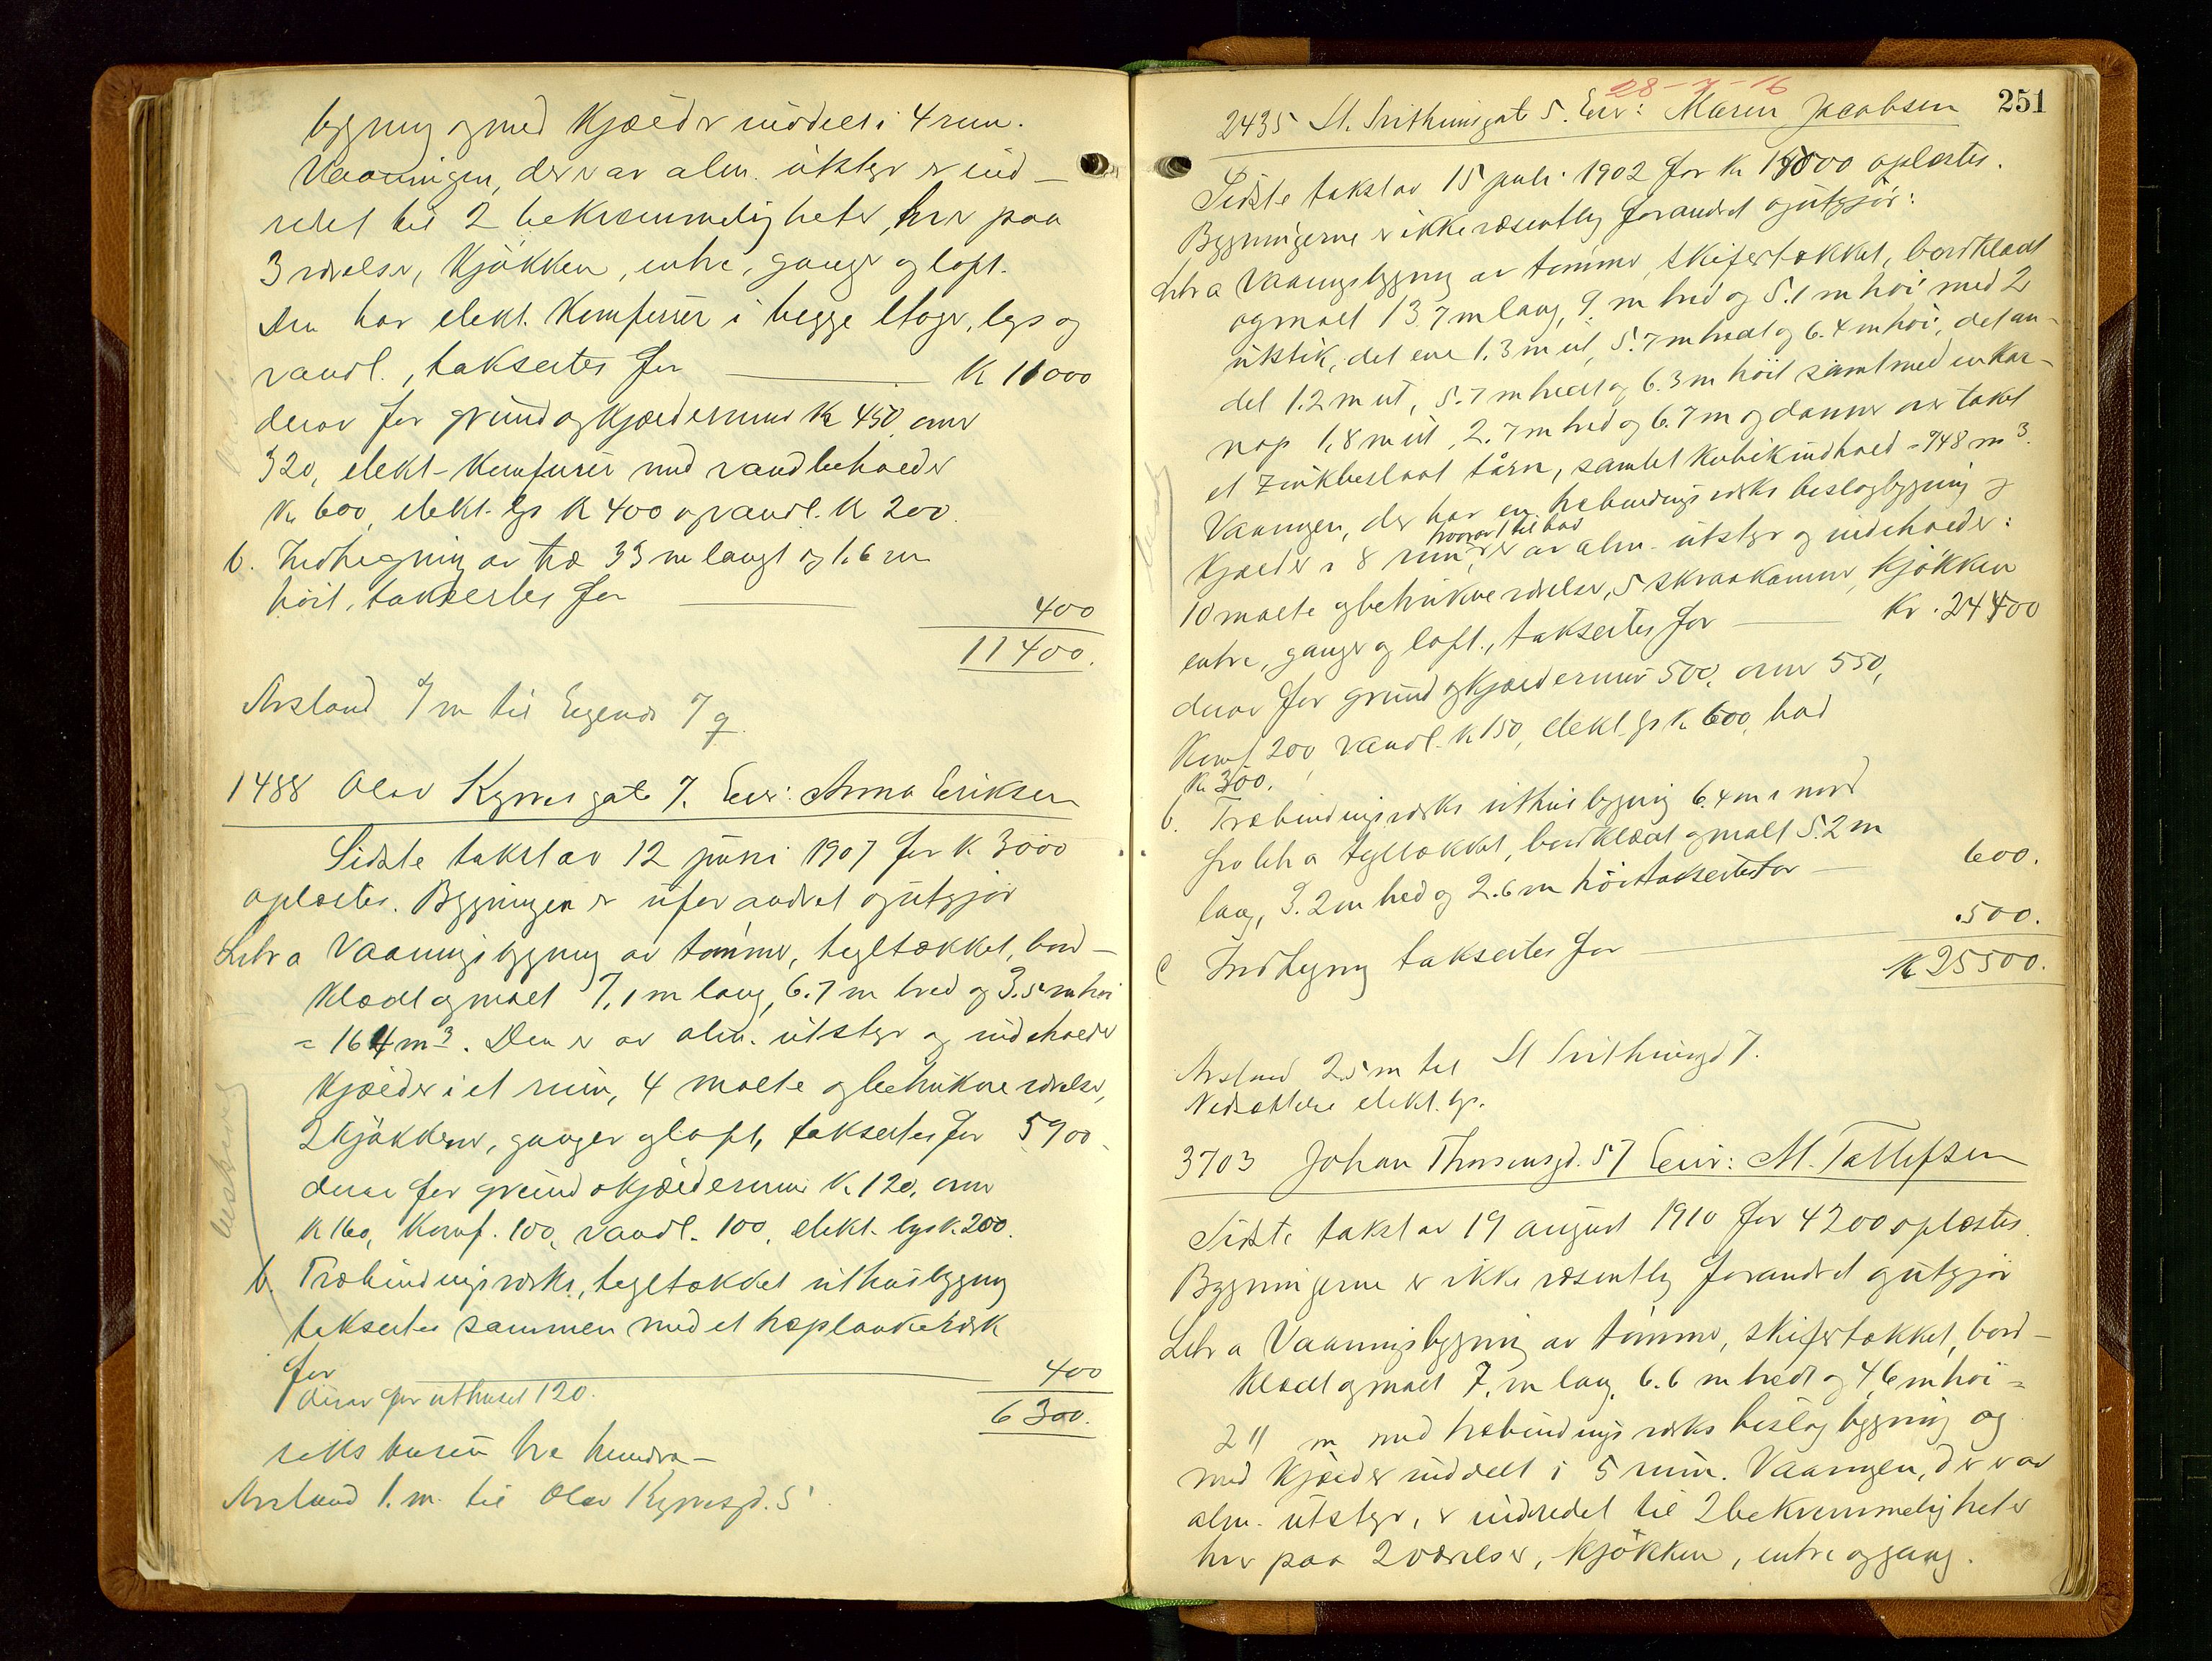 bygning og med Kjælder inddelt i 4 rum.
Vaaningen, der er av alm. utstyr er ind-
redet til 2 bekvemmeligheter, hver paa
3 værelser, Kjøkken, entre, gange og loft.
Den har elekt. Komfurer i begge etager, lys og
vandl., taksertes for K 11000
derav for grund og Kjældermur Kr 450, ovner
320, elekt-Komfurer med vandbeholder
Kr 600, elekt. lys K 400 og vandl. K 200.
b. Indhegning av træ 33 m langt og 1.6 m
høit, taksertes for 400
11400.
Avstand 7 m til Eegenes 79.
1488 Olav Kyrres gate 7. Eier: Anna Eriksen
Sidste takst av 12 juni 1907 for K 3000
oplæstes. Bygningen er uforandret og utgjør
Litr a Vaaningsbygning av tømmer, tegltækket, bord-
klædt og malt 7.1 m lang, 6.7 m bred og 3.5 m høi
= 164 m³. Den er av alm. utstyr og indeholder
Kjælder i et rum, 4 malte og betrukne værelser,
2 Kjøkkener, ganger og loft, taksertes for 5900
derav for grund o Kjældermur K. 120, ovner
K 160, Komf. 100, vandl. 100, elekt. lys K. 200.
b. Træbindingsverks, tegltækket uthusbygning
taksertes sammen med et træplankeverk
for 400
derav for uthuset 120.
6300.
seks tusen tre hundre-
Avstand 1. m. til Olav Kyrresgd. 5.
beskrevet
28-7-16
251
2435 St. Svithunsgate 5. Eier: Maren Jacobsen
Sidste takst av 15 juli 1902 for K 15000 oplæstes.
Bygningerne er ikke væsentlig forandret og utgjør:
Litr a Vaaningsbygning av tømmer, skifertækket, bordklædt
og malt 13.7 m lang, 9. m bred og 5.1 m høi med 2
utstik, det ene 1.3 m ut, 5.7 m bredt og 6.4 m høi, det an-
det 1.2 m ut, 5.7 m bredt og 6.3 m høit samt med en Kar-
nap 1,8 m ut, 2.7 m bred og 6.7 m og danner over taket
et zinkbeslaat tårn, samlet Kubikindhold = 948 m³.
Vaaningen, der har en træbindingsverks beslagbygning og
Kjælder i 8 rum, hvorav 1 til bad er av alm. utstyr og indeholder:
10 malte og betrukne værelser, 5 skraakammer, Kjøkken
entre, ganger og loft., taksertes for Kr. 24400
derav for grund og Kjældermur 500, ovner 550,
Komf. 200 vandl. K 150, elekt. lys K. 600, bad
K 300.
b. Træbindingsverks uthusbygning 6.4 m i nord
fra litr a tegltækket, bordklædt og malt 5.2 m
lang, 3.2 m bred og 2.6 m høi taksertes for 600.
c Indhegning taksertes for 500.
K 25500.
Avstand 2.5 m til St Svithunsgd 7.
Nedsættelse elekt. lys.
3703 Johan Thorsensgd. 57 Eier: M. Tallefsen
Sidste takst av 19 august 1910 for 4200 oplæstes.
Bygningerne er ikke væsentlig forandret og utgjør
Litr a Vaaningsbygning av tømmer, skifertækket, bord-
klædt og malt 7. m lang, 6.6 m bredt og 4.6 m høi =
211 m med træbindingsverks beslagbygning og
med Kjælder inddelt i 5 rum. Vaaningen, der er av
alm. utstyr, er indredet til 2 bekvemmeligheter
hver paa 2 værelser, Kjøkken, entre og gang.